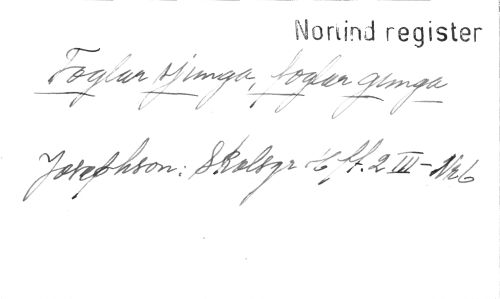 Norlind register
Foglar sjunga, foglar gunga
Josephson: Skolsgr H. 2 III - Nr 6